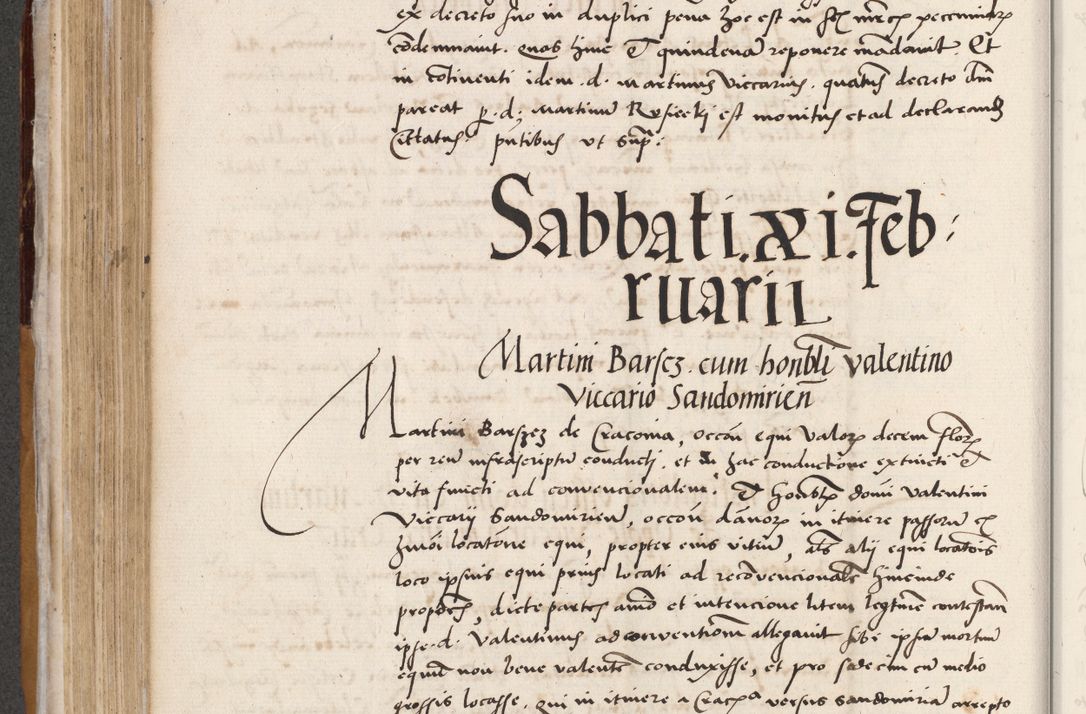 ex decreto suo in duplici pena hoc est in sex mrcis peccuniarum
condemnavit. Quos hinc ad quindenam reponere mandavit Et
in continenti idem .d. Martinus Viccarius. quatenus decreto dni
pareat per .d. Martinum Rysiecki est monitus et ad declarandum
Cittatus. pntibus ut supra.
Sabbati. xi. Feb-
ruarii
Martini Barscz cum honbli valentino
Viccario Sandomirien
Martini Barszcz de Cracovia, occon equi valoris decem flor
per reum infrascriptum conducti, et in hac conductione extincti et
vita functi ad convencionalem. Et honblis domini Valentini
Viccarii Sandomirien, occon danorum in itinere passorum ex
locatone equi, propter eius vitium, als alii equi locatoris
loco ipsius equi prius locati ad reconvencionalem hincinde
propositis, dicte partes animo et intencione litem legitime contestan
ipse .d. Valentinus ad conventionem allegavit sibi ipsum mortuum
equum non bene valentem conduxisse, et pro sedecim cum medio
grossis locasse. qui in itinere a Cracovia versus Sandomiriam arrepto